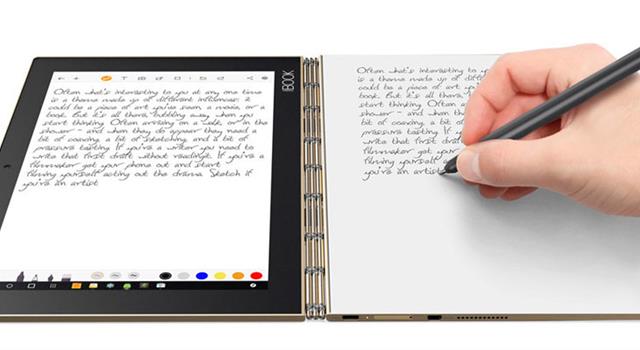 Often what's interesting to you at any one time
is a theme made up of different influences; it
could be a piece of art you've seen a movie, or a
book. But it's all there, bubbling away, when you
start thinking Often arriving on a walk, or in the
shower - and when they do appear they need a
bit of coaxing, a bit of sketching, and a bit of
pressure testing If you're a writer you need to
write that first draft without reading it. If you're a
filmmaker get your phone out and start
filming yourself acting out the drama. Sketch if
you're an artist
BOOK
Often what's interesting to
is a theme made up of different
could be a piece of art you've
book. But it's all there,
start thinking Often
shower - and when
bit of coaxing, a bit
pressure testing If
write that first
filmmaker get your
filming yourself
you're an artist